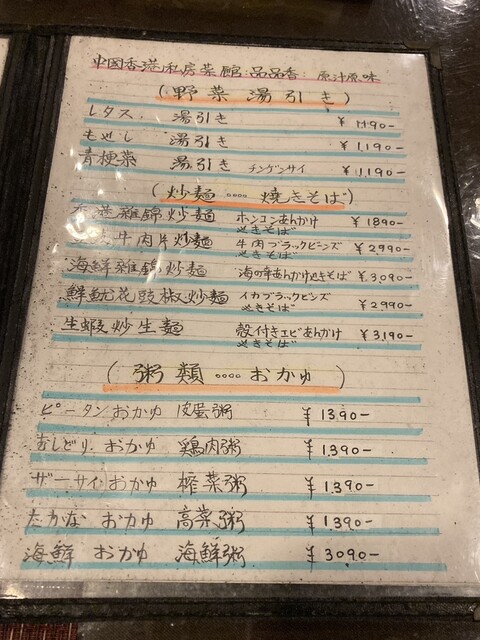 中國香港私房菜館:品品香: 原汁原味
(野菜 湯引き)
レタス. 湯引き ¥1,190-
もやし 湯引き ¥1,190-
青梗菜 湯引き チンゲンサイ ¥1,190-
(炒麺 .... 焼きそば)
香港雜錦炒麺 ホンコンあんかけやきそば ¥1890-
牛肉片炒麺 牛肉ブラックビーンズやきそば ¥2,990-
海鮮雜錦炒麺 海の幸あんかけやきそば ¥3,090-
鮮魷花豉椒炒麺 イカブラックビンズやきそば ¥2990-
生蝦炒生麺 殻付きエビあんかけやきそば ¥3,190-
(粥類 .... おかゆ)
ピータンおかゆ 皮蛋粥 ¥1390-
むしどり. おかゆ 鶏肉粥 ¥1,390-
ザーサイおかゆ 榨菜粥 ¥1,390-
たかな おかゆ 高菜粥 ¥1390-
海鮮 おかゆ 海鮮粥 ¥3090-